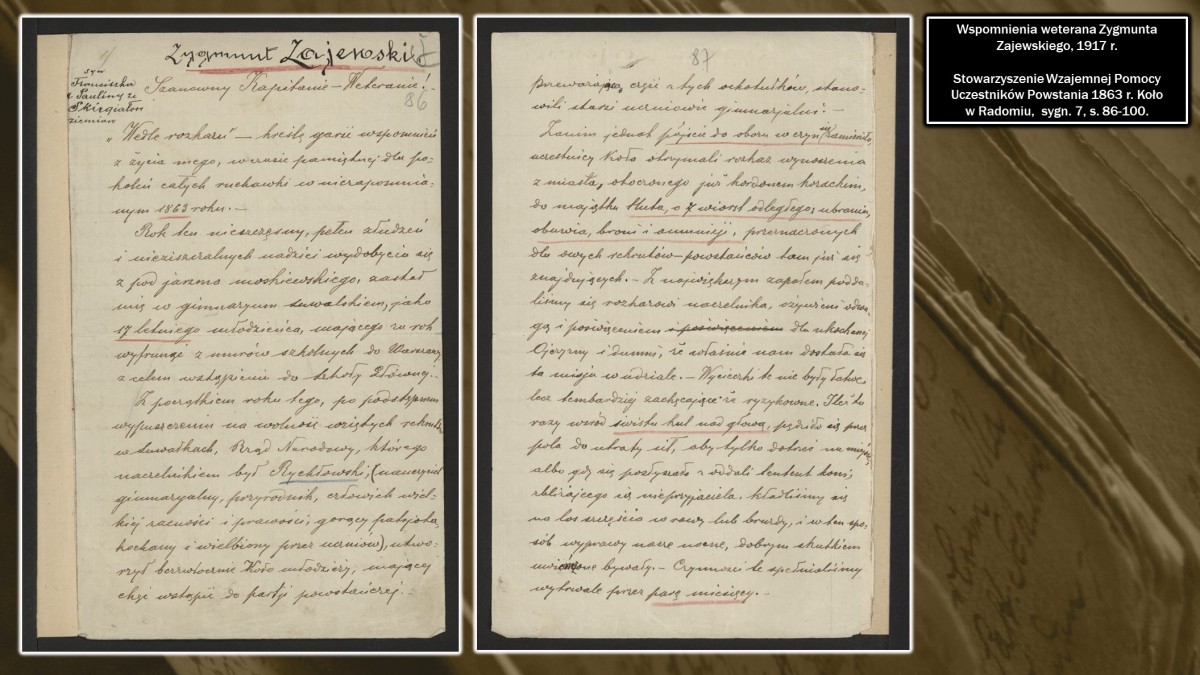 Zygmunt Zajewski
86
syn
Franciszka
i Pauliny ze
Skirgiałłów
ziemian
Szanowny Kapitanie – Weteranie!
„Wedle rozkazu" – kreślę garść wspomnień
z życia mego, w czasie pamiętnej dla po-
koleń całych ruchawki w niezapomnia-
nym 1863 roku. –
Rok ten nieszczęsny, pełen złudzeń
i nieziszczalnych nadziei wydobycia się
z pod jarzma moskiewskiego, zastał
mię w gimnazyum suwalskiem, jako
17 letniego młodzieńca, mającego za rok
wyfrunąć z murów szkolnych do Warszawy
z celem wstąpienia do Szkoły Głównej. –
Z początkiem roku tego, po podstępnem
wypuszczeniu na wolność wziętych rekrutów
w Suwałkach, Rząd Narodowy, którego
naczelnikiem był Rychłowski, (nauczyciel
gimnazyalny, przyrodnik, człowiek wiel-
kiej zacności i prawości, gorący patrjota,
kochany i wielbiony przez uczniów), utwo-
rzył bezzwłocznie Koło młodzieży, mającej
chęć wstąpić do partji powstańczej. –
87
przeważającą część z tych ochotników, stano-
wili starsi uczniowie gimnazjalni. –
Zanim jednak pójście do obozu w czyn zamieniło,
uczestnicy Koła otrzymali rozkaz wynoszenia
z miasta, otoczonego już kordonem kozackim,
do majątku Huta, o 7 wiorst odległego, ubrania,
obuwia, broni i amunicji, przeznaczonych
dla owych rekrutów – powstańców tam już się
znajdujących. – Z największym zapałem podda-
liśmy się rozkazowi naczelnika, ożywieni odwa-
gą i poświęceniem i poświęceniem dla ukochanej
Ojczyzny i dumni, że właśnie nam dostała się
ta misja w udziale. – Wycieczki te nie były łatwe,
lecz tembardziej zachęcające że ryzykowne. Ileż to
razy wśród świstu kul nad głową, pędziło się przez
pola do utraty sił, aby tylko dotrzeć na miejsce
albo gdy się posłyszało z oddali tentent koni,
zbliżającego się nieprzyjaciela, kładliśmy się
na los szczęścia w rowy lub bruzdy, i w ten spo-
sób wyprawy nasze nocne, dobrym skutkiem
uwieńczone bywały. – Czynności te spełnialiśmy
wytrwale przez parę miesięcy. –
Wspomnienia weterana Zygmunta
Zajewskiego, 1917 r.
Stowarzyszenie Wzajemnej Pomocy
Uczestników Powstania 1863 r. Koło
w Radomiu, sygn. 7, s. 86-100.